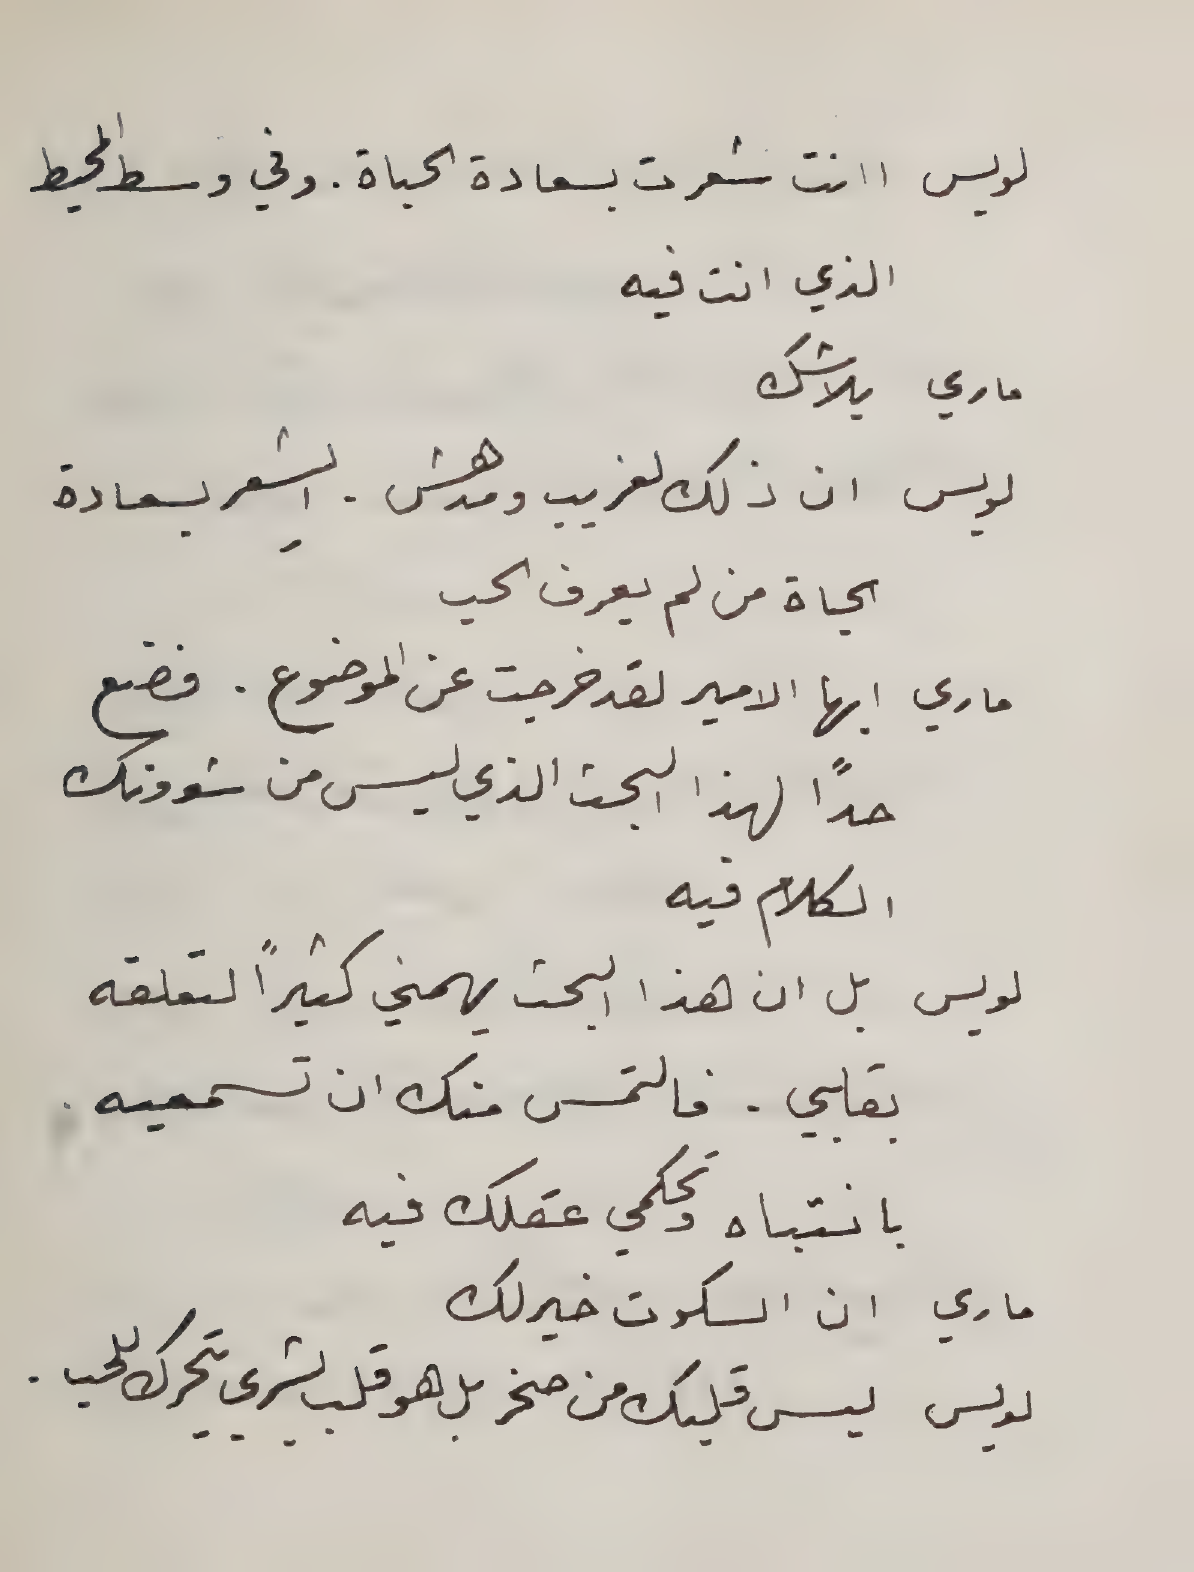 لويس اانت شعرت بسعادة الحياة . وفي وسط المحيط
الذي انت فيه
ماري بلاشك
لويس ان ذلك لغريب ومدهش . ايشعر بسعادة
الحياة من لم يعرف الحب
ماري ايها الامير لقد خرجت عن الموضوع . فضع
حدًا لهذا البحث الذي ليس من شوونك
الكلام فيه
لويس بل ان هذا البحث يهمني كثيرًا لتعلقه
بقلبي . فالتمس منك ان تسمعيه .
بانتباه وتحكمي عقلك فيه
ماري ان السكوت خير لك
لويس ليس قلبك من صخر بل هو قلب بشري يتحرك للحب .